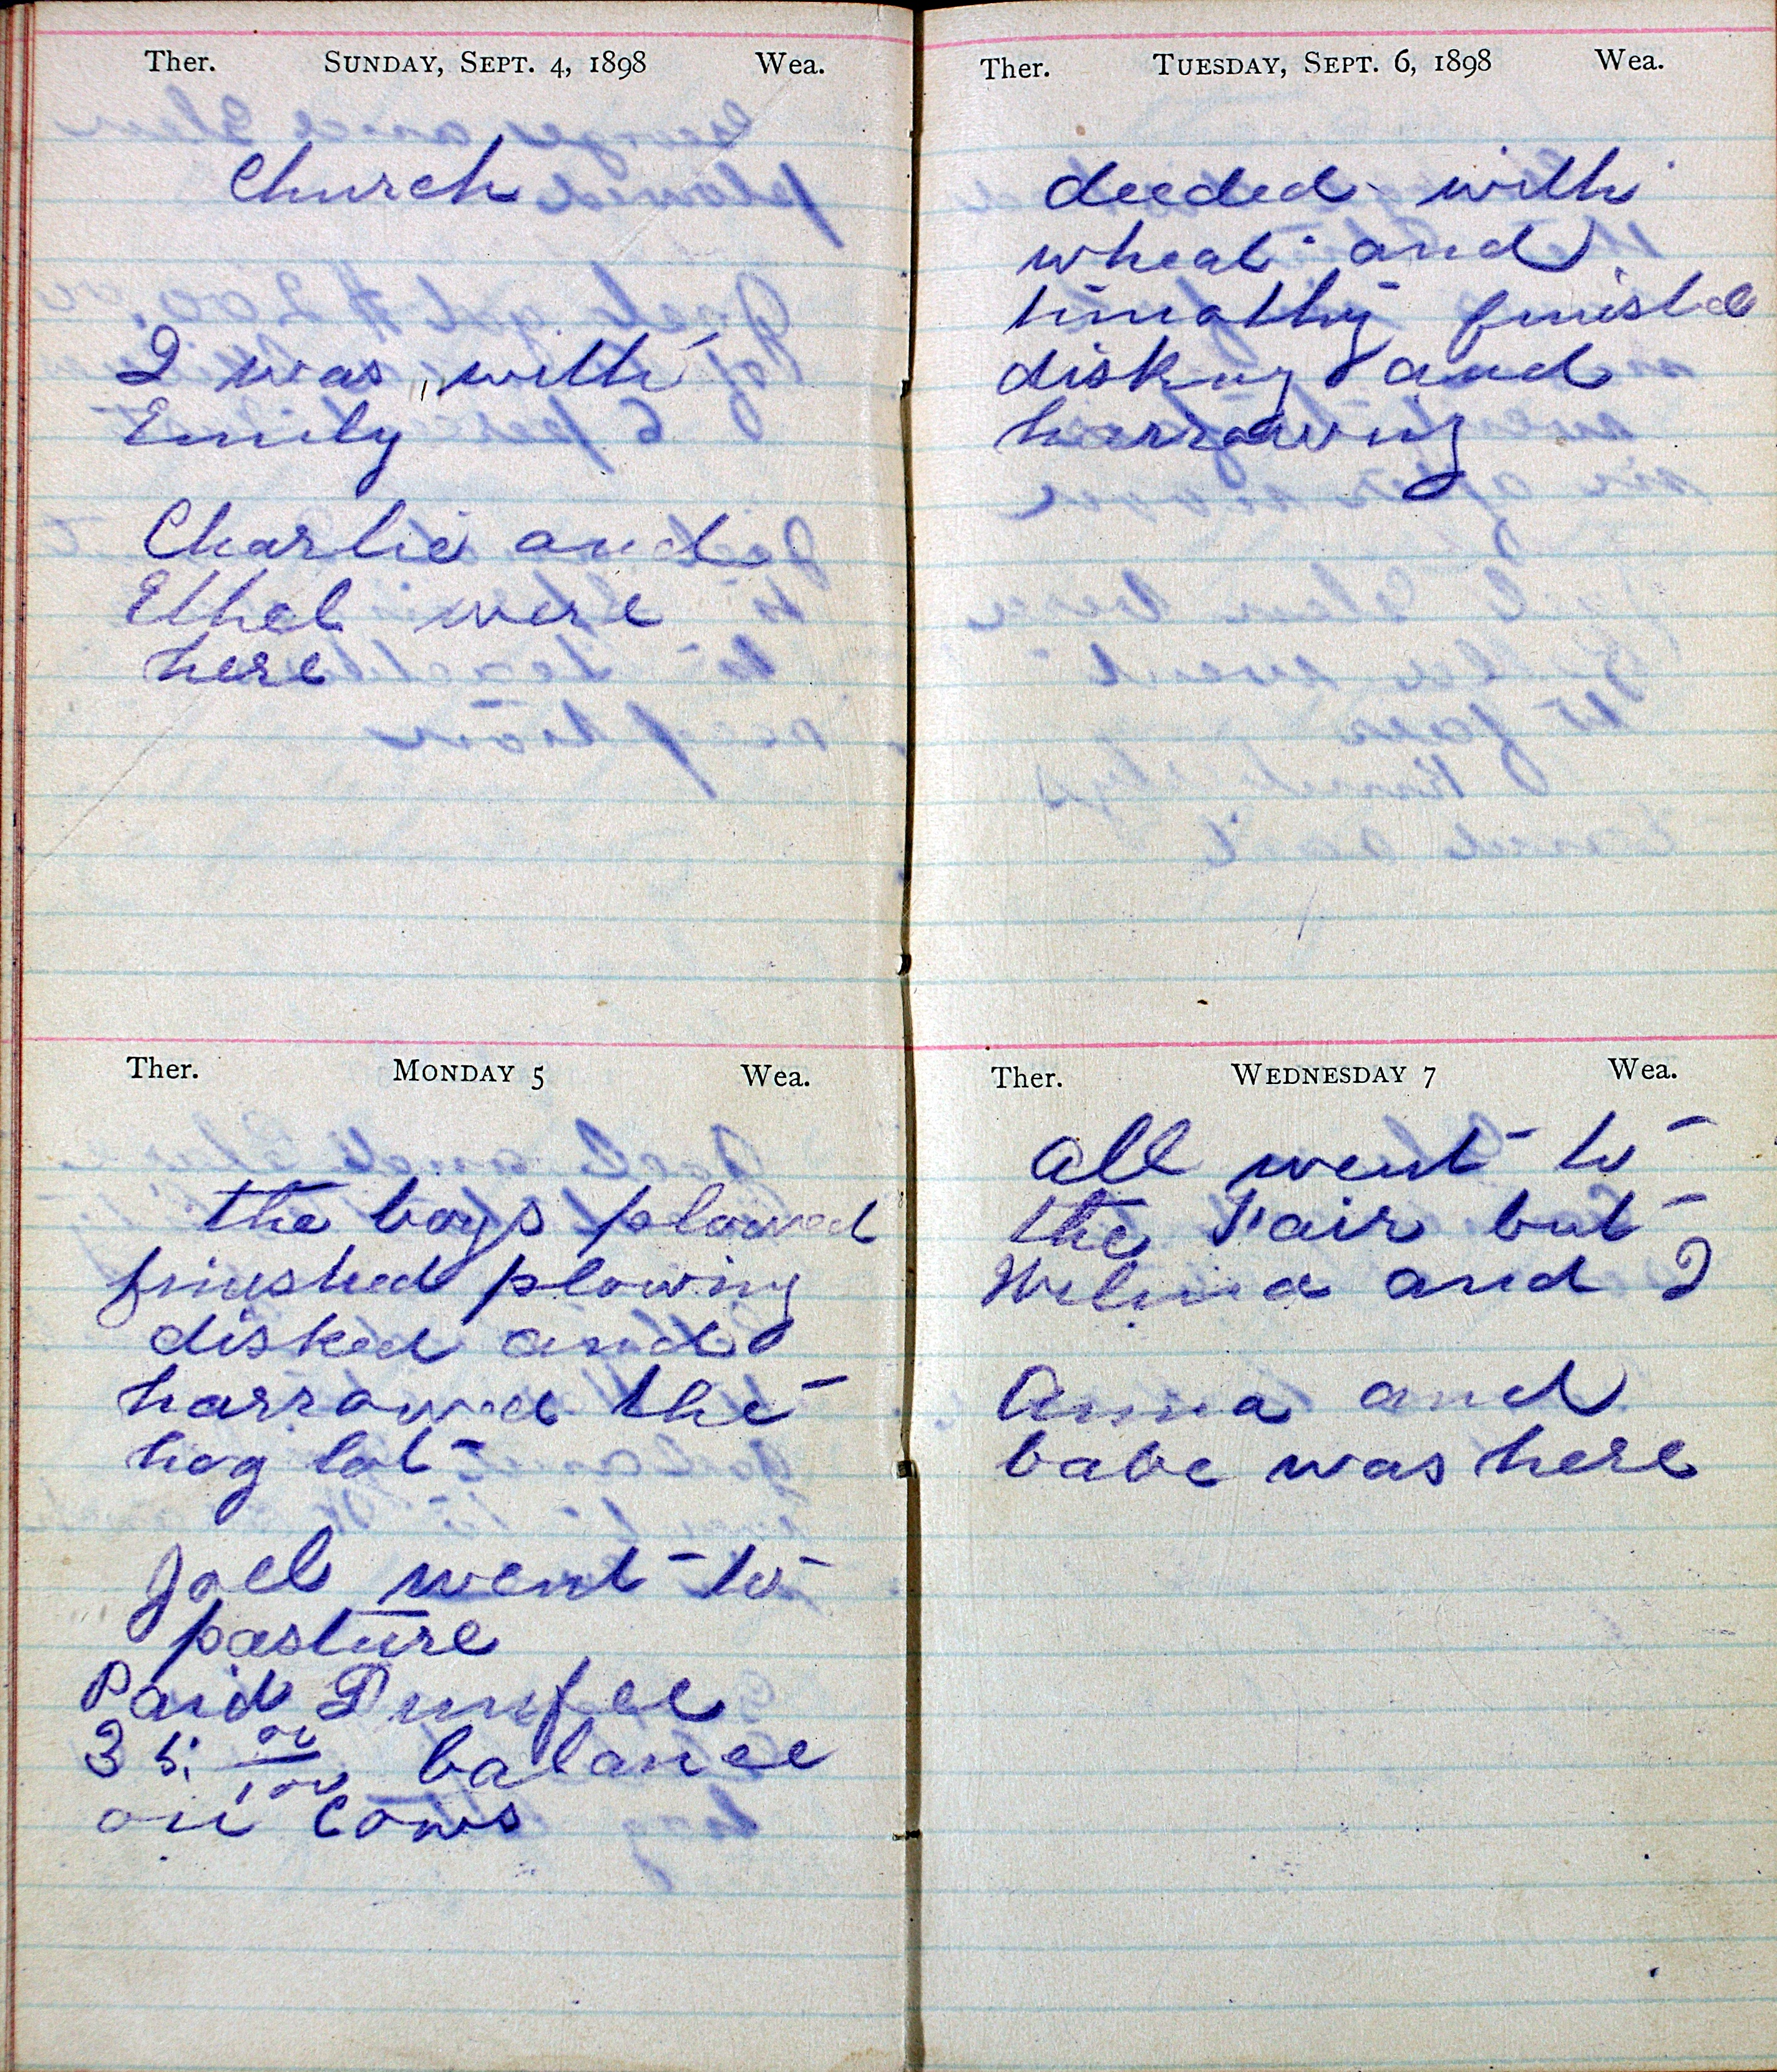 Ther. SUNDAY, SEPT. 4, 1898 Wea.
Church
I was with
Emily
Charlie and
Ethel were
here
Ther. MONDAY 5 Wea.
the boys plowed
finished plowing
disked and
harrowed the
hog lot
Joel went to
pasture
Paid Dunfee
35 00/100 balance
on Cows
Ther. TUESDAY, SEPT. 6, 1898 Wea.
deeded with
wheat and
timothy finished
disking and
harrowing
Ther. WEDNESDAY 7 Wea.
all went to
the Fair but
and I
Anna and
babe was here